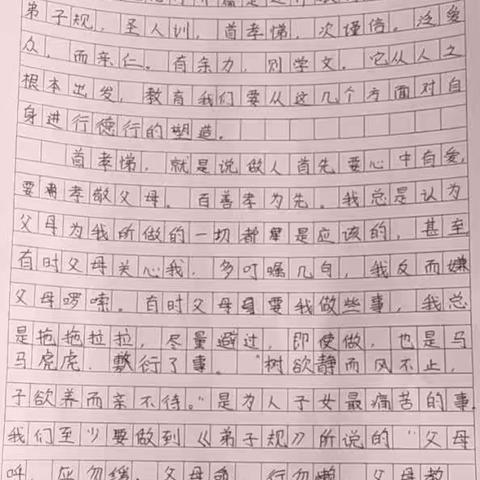 弟子规，圣人训，首孝悌，次谨信。泛爱
众，而亲仁。有余力，则学文。它从人之
根本出发，教育我们要从这几个方面对自
身进行德行的塑造。
首孝悌，就是说做人首先要心中有爱，
要孝敬父母。百善孝为先。我总是认为
父母为我所做的一切都是应该的，甚至
有时父母关心我，多叮嘱几句，我反而嫌
父母啰嗦。有时父母要我做些事，我总
是拖拖拉拉，尽量避过，即使做，也是马
马虎虎，敷衍了事。“树欲静而风不止，
子欲养而亲不待。”是为人子女最痛苦的事。
我们至少要做到《弟子规》所说的“父母
呼，应勿缓，父母命，行勿懒，父母教